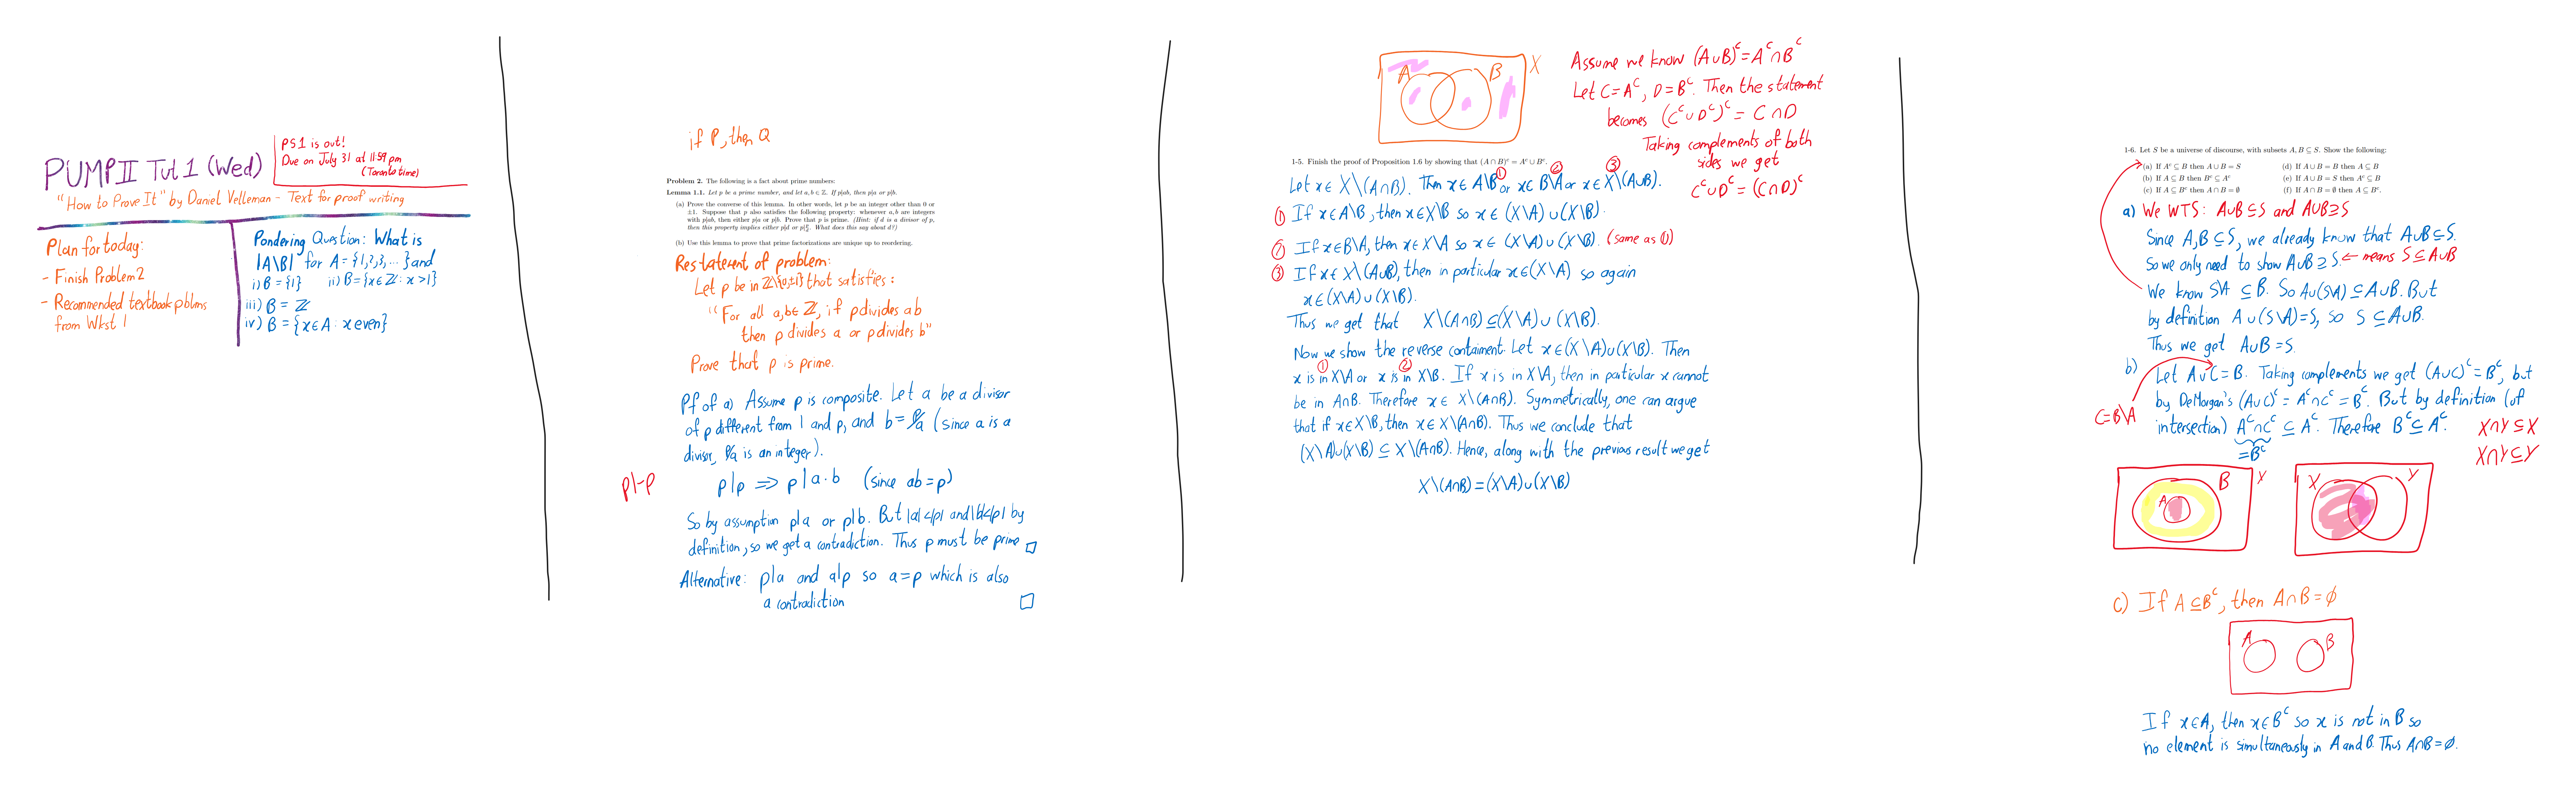 PUMP II Tut 1 (Wed)
PS1 is out!
Due on July 31 at 11:59 pm
(Toronto time)
"How to Prove It" by Daniel Velleman - Text for proof writing
Plan for today:
- Finish Problem 2
- Recommended textbook pblms
from Wkst 1
Pondering Question: What is
|A\B| for A = {1,2,3,...} and
i) B = {1} ii) B = {x∈ℤ: x>1}
iii) B = ℤ
iv) B = {x∈A: x even}
if P, then Q
Problem 2. The following is a fact about prime numbers:
Lemma 1.1. Let p be a prime number, and let a, b ∈ ℤ. If p|ab, then p|a or p|b.
(a) Prove the converse of this lemma. In other words, let p be an integer other than 0 or
±1. Suppose that p also satisfies the following property: whenever a, b are integers
with p|ab, then either p|a or p|b. Prove that p is prime. (Hint: if d is a divisor of p,
then this property implies either p|d or p|p/d. What does this say about d?)
(b) Use this lemma to prove that prime factorizations are unique up to reordering.
Restatement of problem:
Let p be in ℤ\{0,±1} that satisfies:
"For all a,b∈ℤ, if p divides ab
then p divides a or p divides b"
Prove that p is prime.
Pf of a) Assume p is composite. Let a be a divisor
of p different from 1 and p, and b = p/a (since a is a
divisor, p/a is an integer).
p|-p
p|p ⇒ p|a·b (since ab=p)
So by assumption p|a or p|b. But |a|<|p| and |b|<|p| by
definition, so we get a contradiction. Thus p must be prime □
Alternative: p|a and a|p so a=p which is also
a contradiction □
A B X
Assume we know (A∪B)ᶜ = Aᶜ∩Bᶜ
Let C=Aᶜ, D=Bᶜ. Then the statement
becomes (Cᶜ∪Dᶜ)ᶜ = C∩D
Taking complements of both
sides we get
Cᶜ∪Dᶜ = (C∩D)ᶜ
1-5. Finish the proof of Proposition 1.6 by showing that (A ∩ B)ᶜ = Aᶜ ∪ Bᶜ.
① ② ③
Let x∈X\(A∩B). Then x∈A\B or x∈B\A or x∈X\(A∪B).
① If x∈A\B, then x∈X\B so x∈(X\A)∪(X\B).
② If x∈B\A, then x∈X\A so x∈(X\A)∪(X\B). (same as ①)
③ If x∈X\(A∪B), then in particular x∈(X\A) so again
x∈(X\A)∪(X\B).
Thus we get that X\(A∩B)⊆(X\A)∪(X\B).
Now we show the reverse contaiment. Let x∈(X\A)∪(X\B). Then
① ②
x is in X\A or x is in X\B. If x is in X\A, then in particular x cannot
be in A∩B. Therefore x∈X\(A∩B). Symmetrically, one can argue
that if x∈X\B, then x∈X\(A∩B). Thus we conclude that
(X\A)∪(X\B) ⊆ X\(A∩B). Hence, along with the previous result we get
X\(A∩B)=(X\A)∪(X\B)
1-6. Let S be a universe of discourse, with subsets A, B ⊆ S. Show the following:
(a) If Aᶜ ⊆ B then A ∪ B = S (d) If A ∪ B = B then A ⊆ B
(b) If A ⊆ B then Bᶜ ⊆ Aᶜ (e) If A ∪ B = S then Aᶜ ⊆ B
(c) If A ⊆ Bᶜ then A ∩ B = ∅ (f) If A ∩ B = ∅ then A ⊆ Bᶜ.
a) We WTS: A∪B⊆S and A∪B⊇S
Since A,B⊆S, we already know that A∪B⊆S.
So we only need to show A∪B⊇S. ← means S⊆A∪B
We know S\A ⊆ B. So A∪(S\A)⊆A∪B. But
by definition A∪(S\A)=S, so S⊆A∪B.
Thus we get A∪B=S.
b) Let A∪C=B. Taking complements we get (A∪C)ᶜ=Bᶜ, but
by DeMorgan's (A∪C)ᶜ = Aᶜ∩Cᶜ = Bᶜ. But by definition (of
C=B\A
intersection) Aᶜ∩Cᶜ ⊆ Aᶜ. Therefore Bᶜ⊆Aᶜ.
=Bᶜ
X∩Y⊆X
X∩Y⊆Y
A B X
X Y
c) If A⊆Bᶜ, then A∩B=∅
A B
If x∈A, then x∈Bᶜ so x is not in B so
no element is simultaneously in A and B. Thus A∩B=∅.